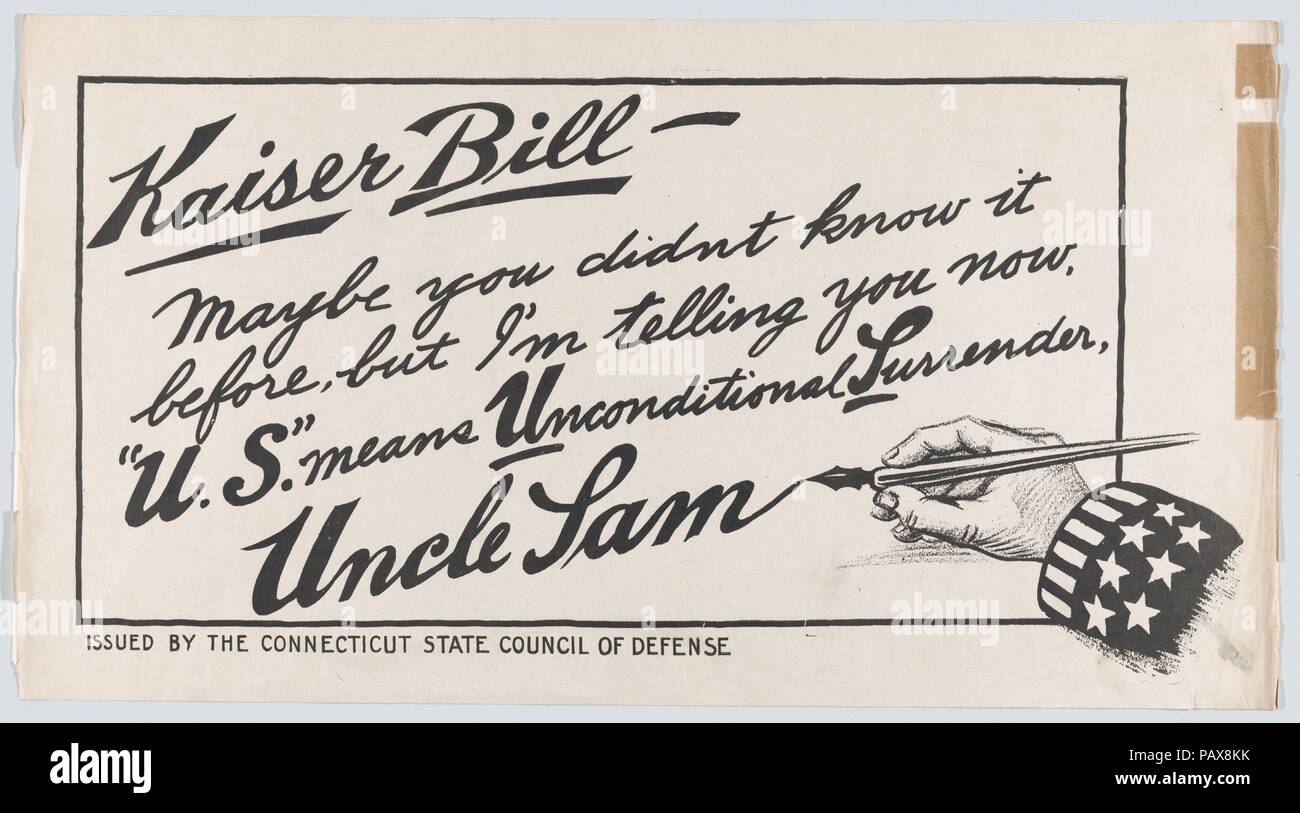 Kaiser Bill —
Maybe you didnt know it
before, but I'm telling you now,
"U.S." means Unconditional Surrender,
Uncle Sam
ISSUED BY THE CONNECTICUT STATE COUNCIL OF DEFENSE
alamy
Image ID: PAX8KK
www.alamy.com